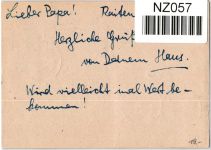 Lieber Papa! Reiten
NZ057
Herzliche Grüße
von Deinem Hans.
Wird vielleicht mal Wert be-
kommen!